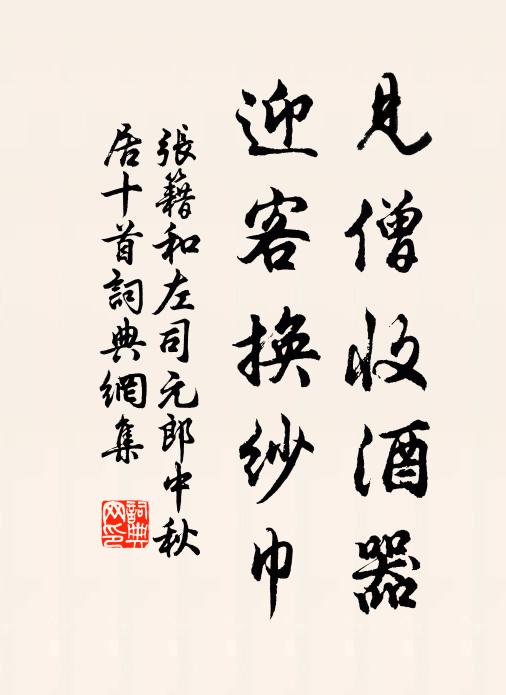 見僧收酒器
迎客換紗巾
張籍和左司元郎中秋
居十首詞典網集
詞典
网印